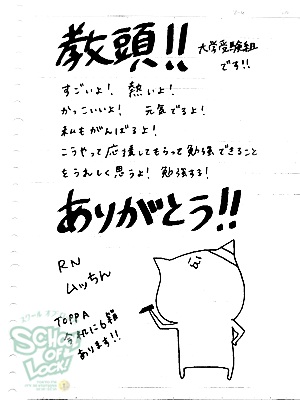 教頭!!
大学受験組
です!!
すごいよ! 熱いよ!
かっこいいよ! 元気でるよ!
私もがんばるよ!
こうやって応援してもらって勉強できること
をうれしく思うよ! 勉強する!
ありがとう!!
RN
ムッちん
TOPPA
今机に6箱
あります!!
SCHOOL
OF
LOCK!